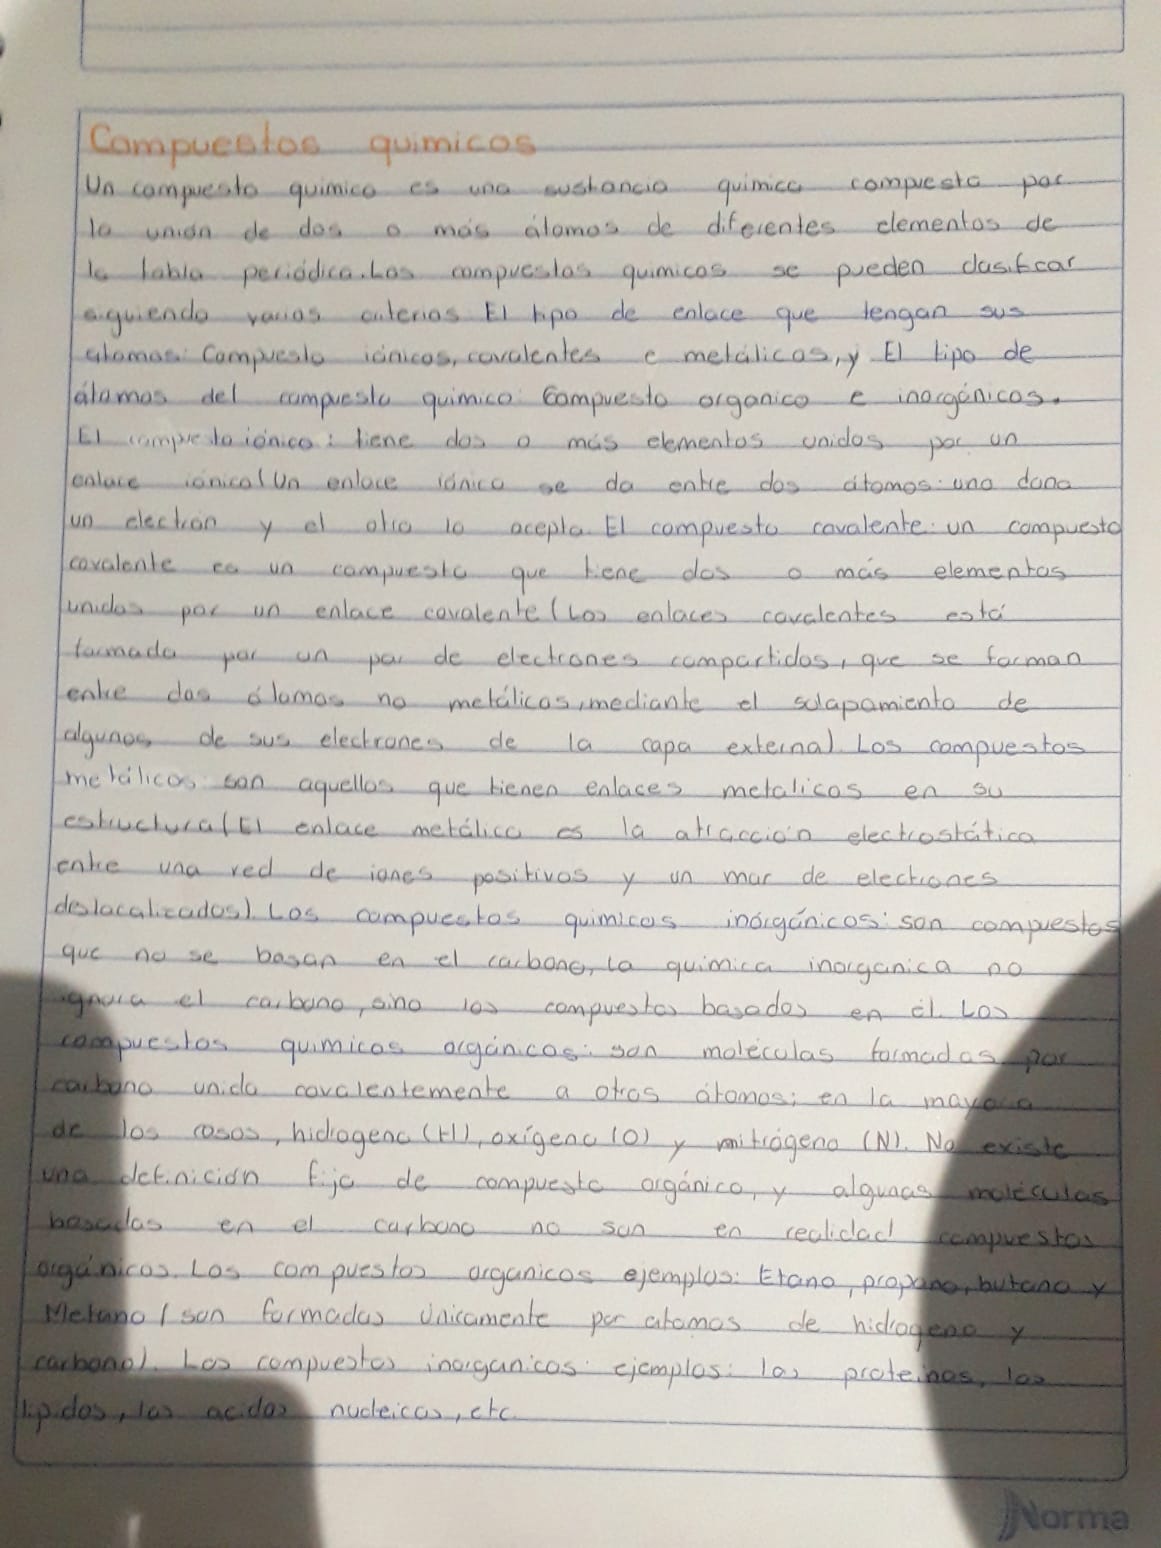 Compuestos quimicos
Un compuesto químico es una sustancia química compuesta por
la unión de dos o más átomos de diferentes elementos de
la tabla periódica. Los compuestos quimicos se pueden clasificar
siguiendo varios criterios El tipo de enlace que tengan sus
atomos: Compuesto iónicos, covalentes e metálicos, y El tipo de
átomos del compuesto quimico: Compuesto organico e inorgánicos.
El compuesto iónico: tiene dos o más elementos unidos por un
enlace iónico (Un enlace iónico se da entre dos átomos: uno dona
un electrón y el otro lo acepta. El compuesto covalente: un compuesto
covalente es un compuesto que tiene dos o más elementos
unidos por un enlace covalente (Los enlaces covalentes está
formada por un par de electrones compartidos, que se forman
entre dos átomos no metálicos, mediante el solapamiento de
algunos de sus electrones de la capa externa). Los compuestos
metálicos: son aquellos que tienen enlaces metalicos en su
estructura (El enlace metálico es la atracción electrostática
entre una red de iones positivos y un mar de electrones
deslocalizados). Los compuestos quimicos inórgánicos: son compuestos
que no se basan en el carbono, la química inorganica no
ignora el carbono, sino los compuestos basados en él. Los
compuestos quimicos orgánicos: son moléculas formadas por
carbono unido covalentemente a otros átomos; en la mayoria
de los casos, hidrogeno (H), oxígeno (O) y nitrógeno (N). No existe
una definición fija de compuesto orgánico, y algunas moléculas
basadas en el carbono no son en realidad compuestos
orgánicos. Los compuestos organicos ejemplos: Etano, propano, butano y
Metano (son formados únicamente por atomos de hidrogeno y
carbono). Los compuestos inorganicos: ejemplos: las proteinas, los
lipidos, los acidos nucleicos, etc.
Norma